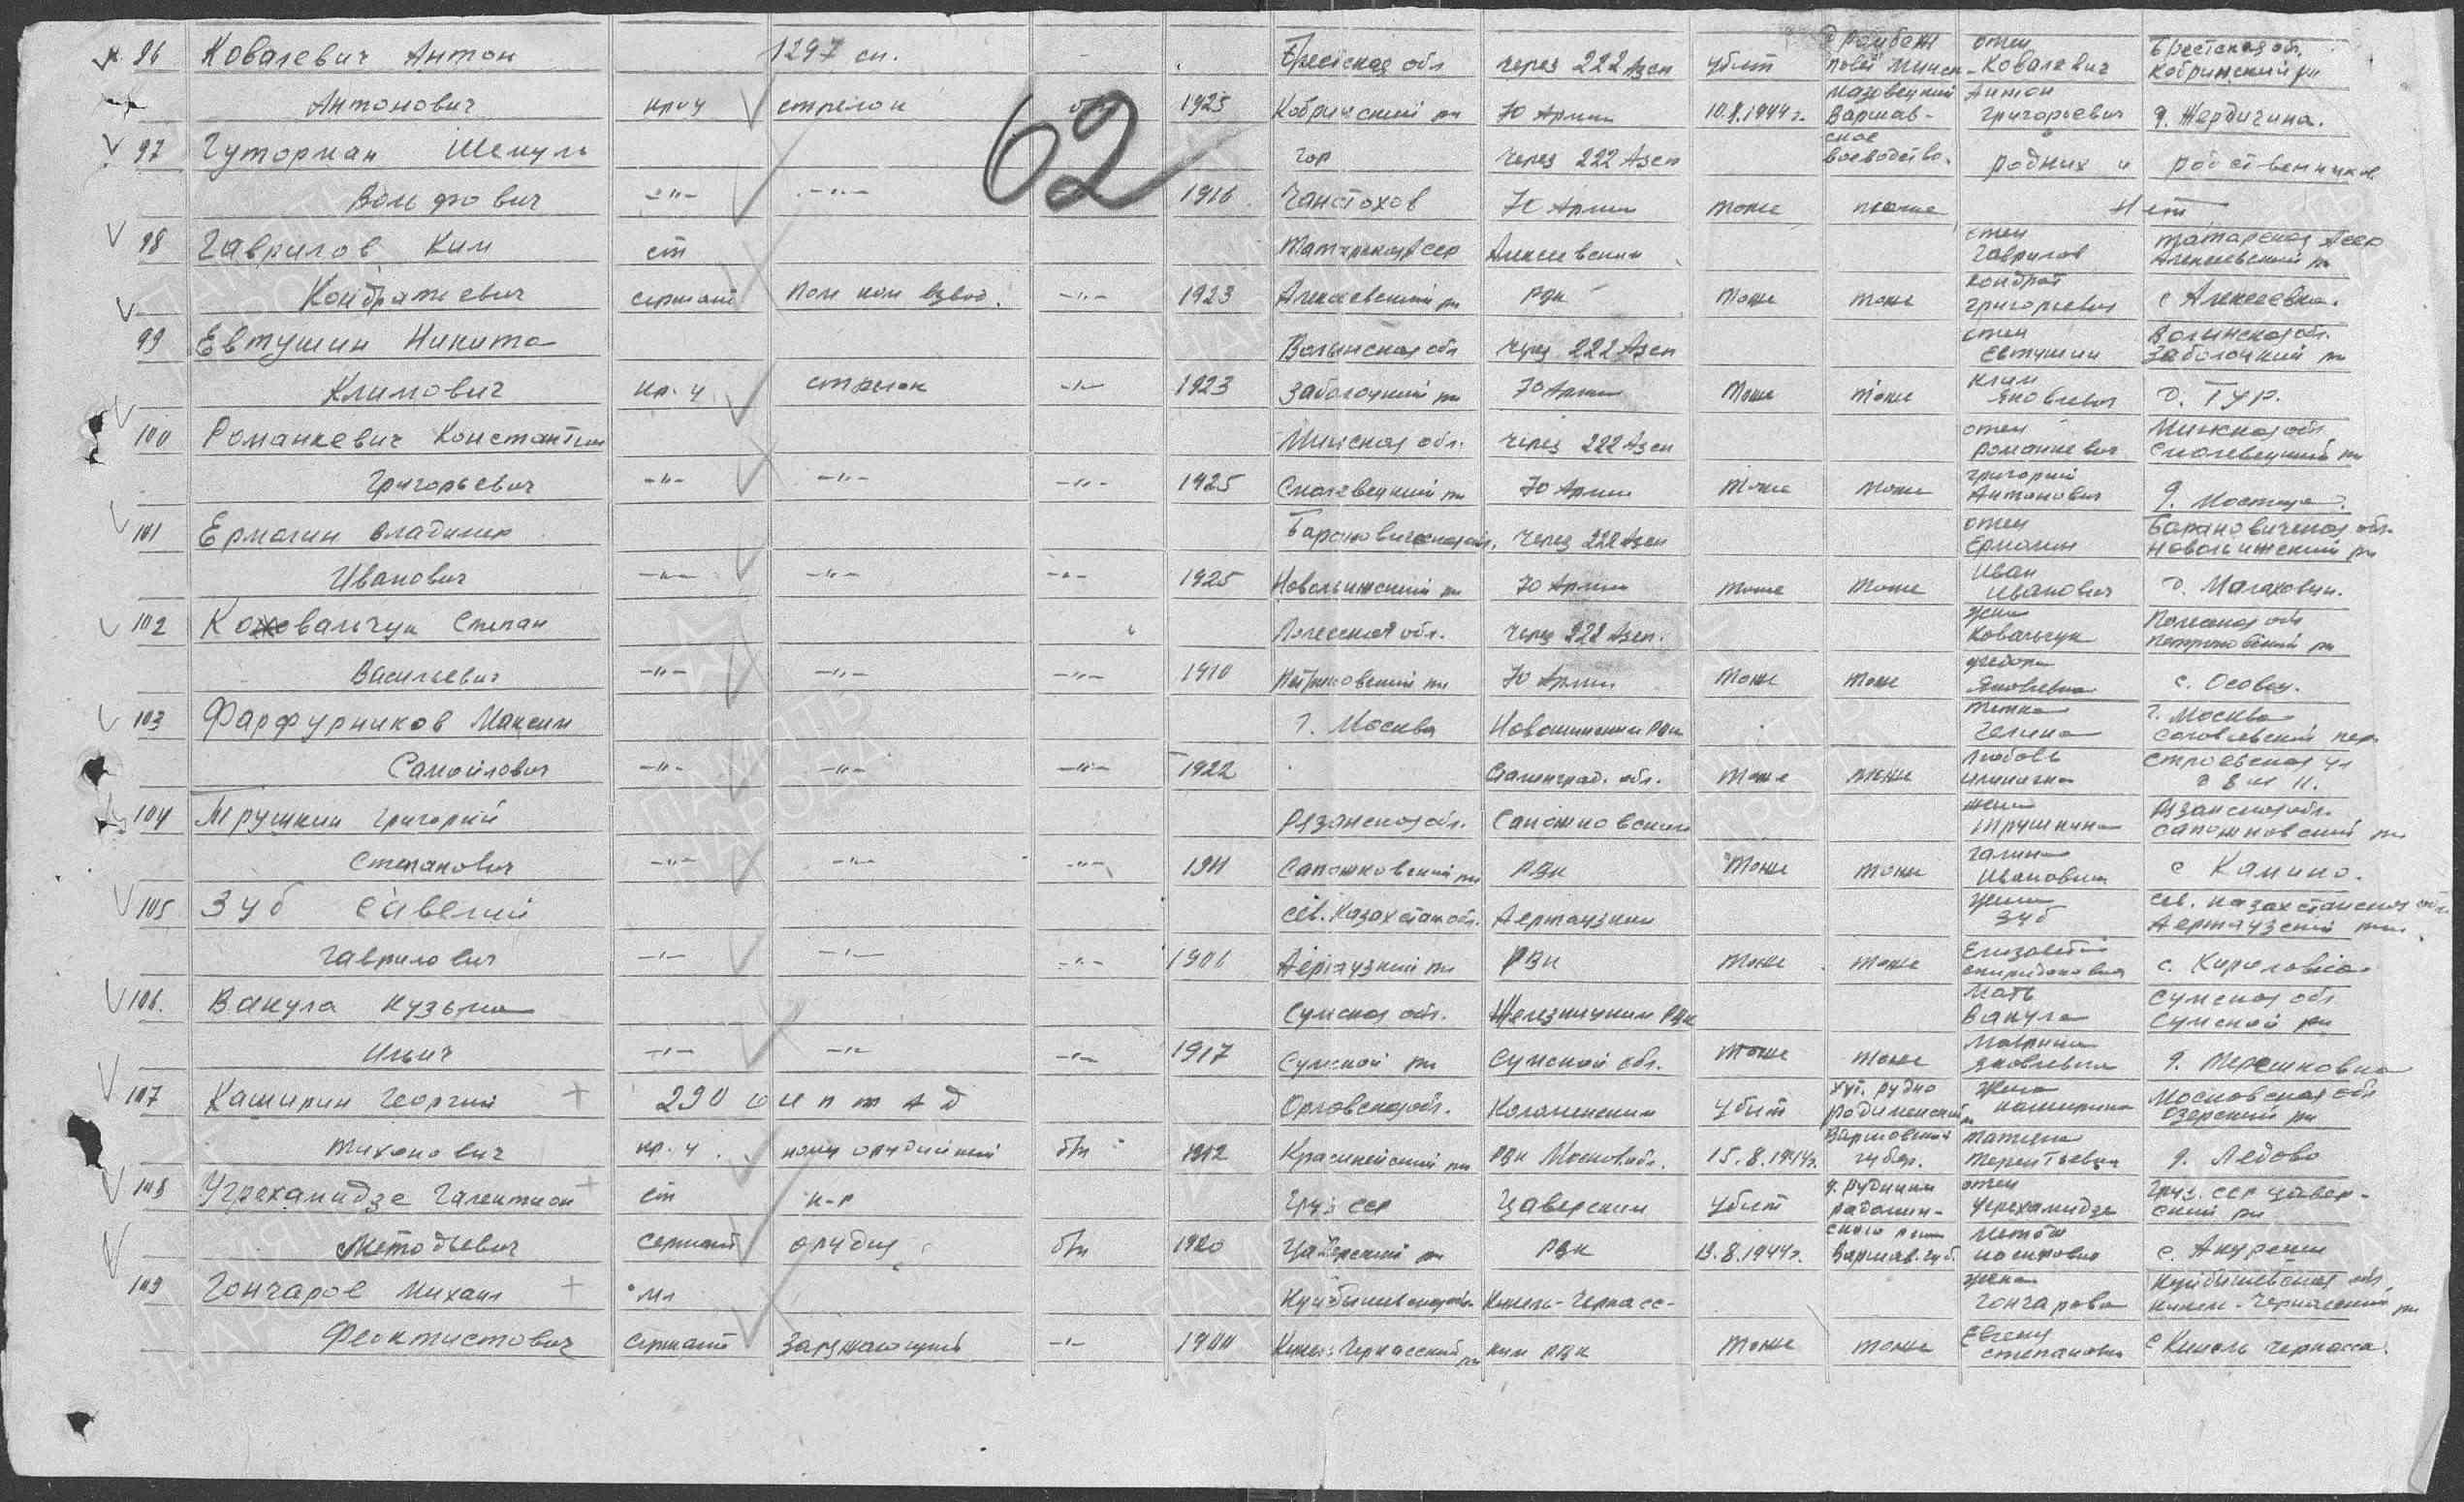 96 Ковалевич Антон 1297 сп. - Брестская обл через 222 Азсп убит отец Брестская об.
Ковалевич Кобринский рн
Антонович кр-ц стрелок б/п 1925 Кобринский рн 70 Армии 10.8.1944г. Мазовецкий Варшав- Антон Григорьевич д. Жердичина.
97 Гуторман Шемуль гор через 222 Азсп ское воеводство. родных и родственников
Вольфович -"- -"- 1916 Чанстохов 70 Армии тоже тоже Нет
62
98 Гаврилов Ким ст Татарская Асср Алексеевским отец Гаврилов Татарская Асср Алексеевский рн
Кондратиевич сержант Пом ком взвод. -"- 1923 Алексеевский рн РВК тоже тоже Кондрат Григорьевич с Алексеевка.
99 Евтушик Никита Волынская обл через 222 Азсп отец Евтушик Волынская обл. Заболоцкий рн
Климович кр. ц стрелок -"- 1923 Заболоцкий рн 70 Армии тоже тоже Клим Яковлевич д. Тур.
100 Романкевич Константин Минская обл. через 222 Азсп отец Романкевич Минская обл. Смолевецкий рн
Григорьевич -"- -"- -"- 1925 Смолевецкий рн 70 Армии тоже тоже Григорий Антонович д.
101 Ермолин Владимир Барановическая обл. через 222 Азсп отец Ермолин Барановическая обл.
Иванович -"- -"- -"- 1925 70 Армии тоже тоже Иван Иванович д.
102 Ковальчук Степан Полесская обл. через 222 Азсп. жена Ковальчук Полесская обл Петриковский рн
Васильевич -"- -"- -"- 1910 Петриковский рн 70 Армии тоже тоже Яковлевна с. Осовец.
103 Фарфурников Максим г. Москва РВК тетка г. Москва
Самойлович -"- -"- -"- 1922 Сталинград. обл. тоже тоже Любовь Ильинична
104 Трушкин Григорий Рязанская обл. Сапожковским жена Трушкина Рязанская обл. Сапожковский рн
Степанович -"- -"- -"- 1911 Сапожковский рн РВК тоже тоже Галина Ивановна с Канино.
105 Зуб Савелий Сев. Казахстан обл. Аертаузким жена Зуб Сев. Казахстанская обл. Аертаузский рн
Гаврилович -"- -"- -"- 1906 Аертаузкий рн РВК тоже тоже Елизавета Спиридоновна с. Кириловка
106. Вакула Кузьма Сумская обл. РВК мать Вакула Сумская обл Сумской рн
Ильич -"- -"- -"- 1917 Сумской рн Сумской обл. тоже тоже Яковлевна д. Терешковка
107 Каширин Георгий + 290 о и п т а д Орловская обл. Коломенским убит жена Каширина Московская обл Озерский рн
Тихонович кр. ц. орудийный б/п 1912 РВК Москов. обл. 15.8.1944г. губер. Татьяна Терентьевна д. Ледово
108 Угрехелидзе Галентион + ст к-р Груз ССР Цаверским убит отец Угрехелидзе Груз. ССР Цаверский рн
Методьевич сержант орудия б/п 1920 Цаверский рн РВК 13.8.1944г. Варшав. губ.
109 Гончаров Михаил + мл Куйбышевская обл Кинель-Черкасс- жена Гончарова Куйбышевская обл Кинель-Черкасский рн
Феоктистович сержант заряжающий -"- 1900 Кинель-Черкасский рн ким РВК тоже тоже Степановна с Кинель Черкасса.
ПАМЯТЬ НАРОДА